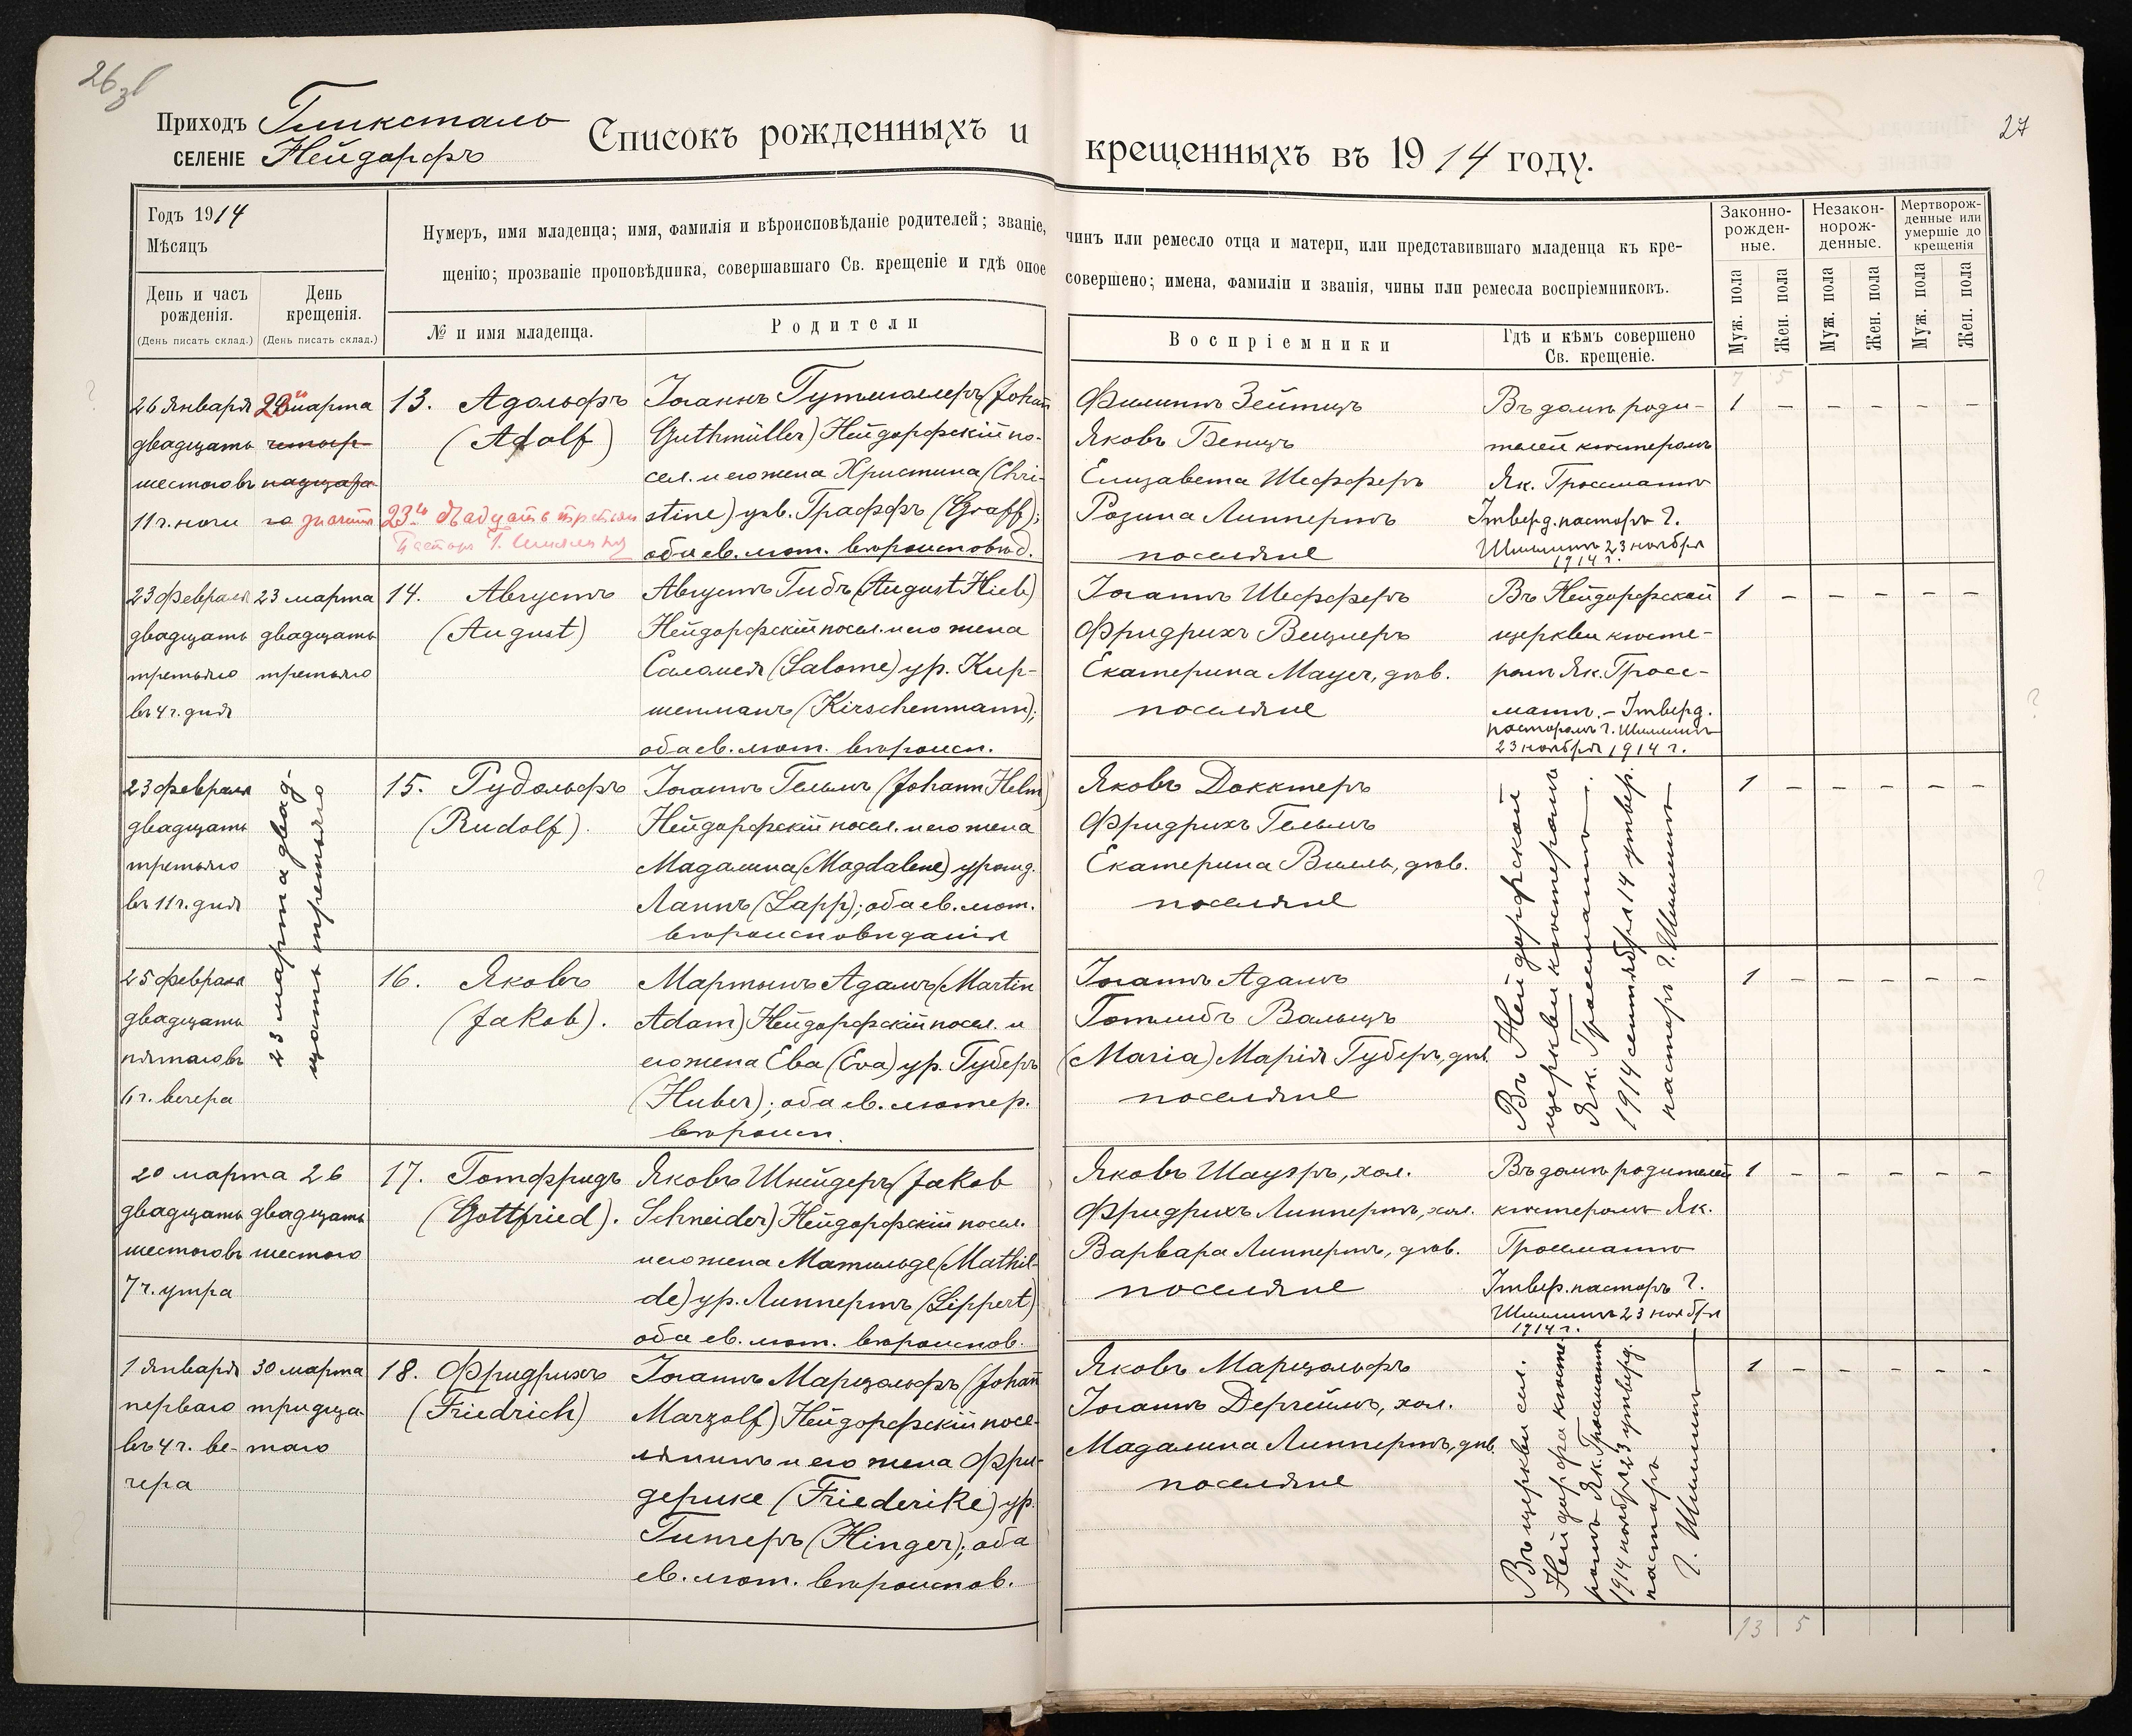 26 зв
27
Приходъ Глюксталь
селеніе Нейдорфъ
Списокъ рожденныхъ и крещенныхъ въ 1914 году.
Годъ 1914
Мѣсяцъ
День и часъ рожденія.
(День писать склад.)
День крещенія.
(День писать склад.)
Нумеръ, имя младенца; имя, фамилія и вѣроисповѣданіе родителей; званіе, чинъ или ремесло отца и матери, или представившаго младенца къ кре-
щенію; прозваніе проповѣдника, совершавшаго Св. крещеніе и гдѣ оное совершено; имена, фамиліи и званія, чины или ремесла воспріемниковъ.
№ и имя младенца.
Родители
Воспріемники
Гдѣ и кѣмъ совершено
Св. крещеніе.
Законно-
рожден-
ные.
Незакон-
норож-
денные.
Мертворож-
денные или
умершіе до
крещенія
Муж. пола
Жен. пола
Муж. пола
Жен. пола
Муж. пола
Жен. пола
7 5
26 января
двадцать
шестого въ
11 г. ночи
марта
13. Адольфъ
(Adolf)
23го двадцать третьяго
Пасторъ Г.
Іоаннъ Гутмюллеръ (Johann
Guthmüller) Нейдорфскій по-
сел. и его жена Христина (Chri-
stine) ур. Граффъ (Graff);
оба ев. лют. вѣроисповѣд.
Филиппъ Зейтцъ
Яковъ Бенцъ
Елизавета Шефферъ
Розина Липпертъ
поселяне
Въ домѣ роди-
телей кюстеромъ
Як. Гроссманнъ
Утверд. пасторъ Г.
Шиллингъ 23 ноября
1914 г.
1 – – – – –
23 февраля
двадцать
третьяго
въ 4 г. дня
23 марта
двадцать
третьяго
14. Августъ
(August)
Августъ Гибъ (August Hieb)
Нейдорфскій посел. и его жена
Саломея (Salome) ур. Кир-
шенманъ (Kirschenmann);
оба ев. лют. вѣроисп.
Іоаннъ Шефферъ
Фридрихъ Вецлеръ
Екатерина Мауеr, дѣв.
поселяне
Въ Нейдорфской
церкви кюсте-
ромъ Як. Гросс-
манъ. – Утверд.
пасторомъ Г. Шиллингъ
23 ноября 1914 г.
1 – – – – –
23 февраля
двадцать
третьяго
въ 11 г. дня
23 марта двад-
цать третьяго
15. Рудольфъ
(Rudolf).
Іоаннъ Гельмъ (Johann Helm)
Нейдорфскій посел. и его жена
Мадалина (Magdalene) урожд.
Лаппъ (Lapp); оба ев. лют.
вѣроисповѣданія
Яковъ Доккторъ
Фридрихъ Гельмъ
Екатерина Вилль, дѣв.
поселяне
Въ Нейдорфской
церкви кюстеромъ
Як. Гроссманнъ.
1914 сентября 14 утвер.
пасторъ Г. Шиллингъ
1 – – – – –
25 февраля
двадцать
пятаго въ
6 г. вечера
16. Яковъ
(Jakob).
Мартынъ Адамъ (Martin
Adam) Нейдорфскій посел. и
его жена Ева (Eva) ур. Губеръ
(Huber); оба ев. лютер.
вѣроисп.
Іоаннъ Адамъ
Готлибъ Вальцъ
(Maria) Марія Губеръ, дѣв.
поселяне
1 – – – – –
20 марта 26
двадцать двадцать
шестого въ шестого
7 г. утра
17. Готфридъ
(Gottfried).
Яковъ Шнейдеръ (Jakob
Schneider) Нейдорфскій посел.
и его жена Матильде (Mathil-
de) ур. Липпертъ (Lippert)
оба ев. лют. вѣроиспов.
Яковъ Шауэръ, хол.
Фридрихъ Липпертъ, хол.
Варвара Липпертъ, дѣв.
поселяне
Въ домѣ родителей
кюстеромъ Як.
Гроссманнъ
Утвер. пасторъ Г.
Шиллингъ 23 ноября
1914 г.
1 – – – – –
1 января
перваго
въ 4 г. ве-
чера
30 марта
тридца-
таго
18. Фридрихъ
(Friedrich)
Іоаннъ Марцольфъ (Johann
Marzolf) Нейдорфскій посе-
лянинъ и его жена Фри-
дерике (Friederike) ур.
Гингеръ (Hinger); оба
ев. лют. вѣроиспов.
Яковъ Марцольфъ
Іоаннъ Дергеймъ, хол.
Мадалина Липпертъ, дѣв.
поселяне
Въ церкви сел.
Нейдорфа кюсте-
ромъ Як. Гроссманнъ
1914 ноября 23 утверд.
пасторъ
Г. Шиллингъ
1 – – – – –
13 5